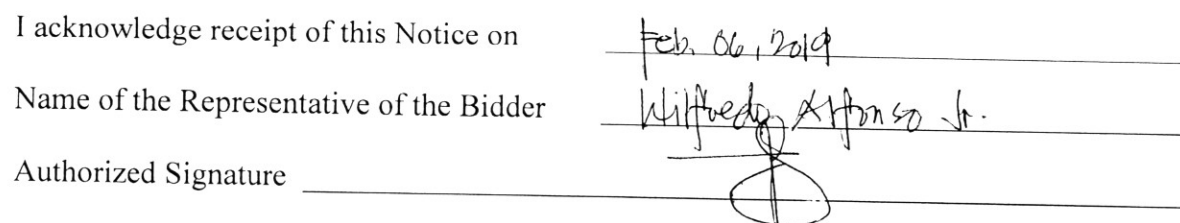 I acknowledge receipt of this Notice on Feb. 06, 2019
Name of the Representative of the Bidder Wilfredo Alfonso Jr.
Authorized Signature